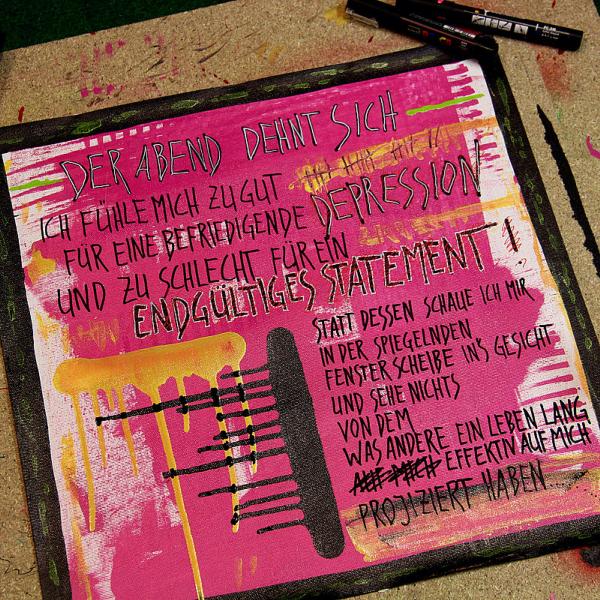 DER ABEND DEHNT SICH
ICH FÜHLE MICH ZU GUT
FÜR EINE BEFRIEDIGENDE DEPRESSION
UND ZU SCHLECHT FÜR EIN
ENDGÜLTIGES STATEMENT!
STATT DESSEN SCHAUE ICH MIR
IN DER SPIEGELNDEN
FENSTERSCHEIBE IN'S GESICHT
UND SEHE NICHTS
VON DEM
WAS ANDERE EIN LEBEN LANG
EFFEKTIV AUF MICH
PROJIZIERT HABEN...